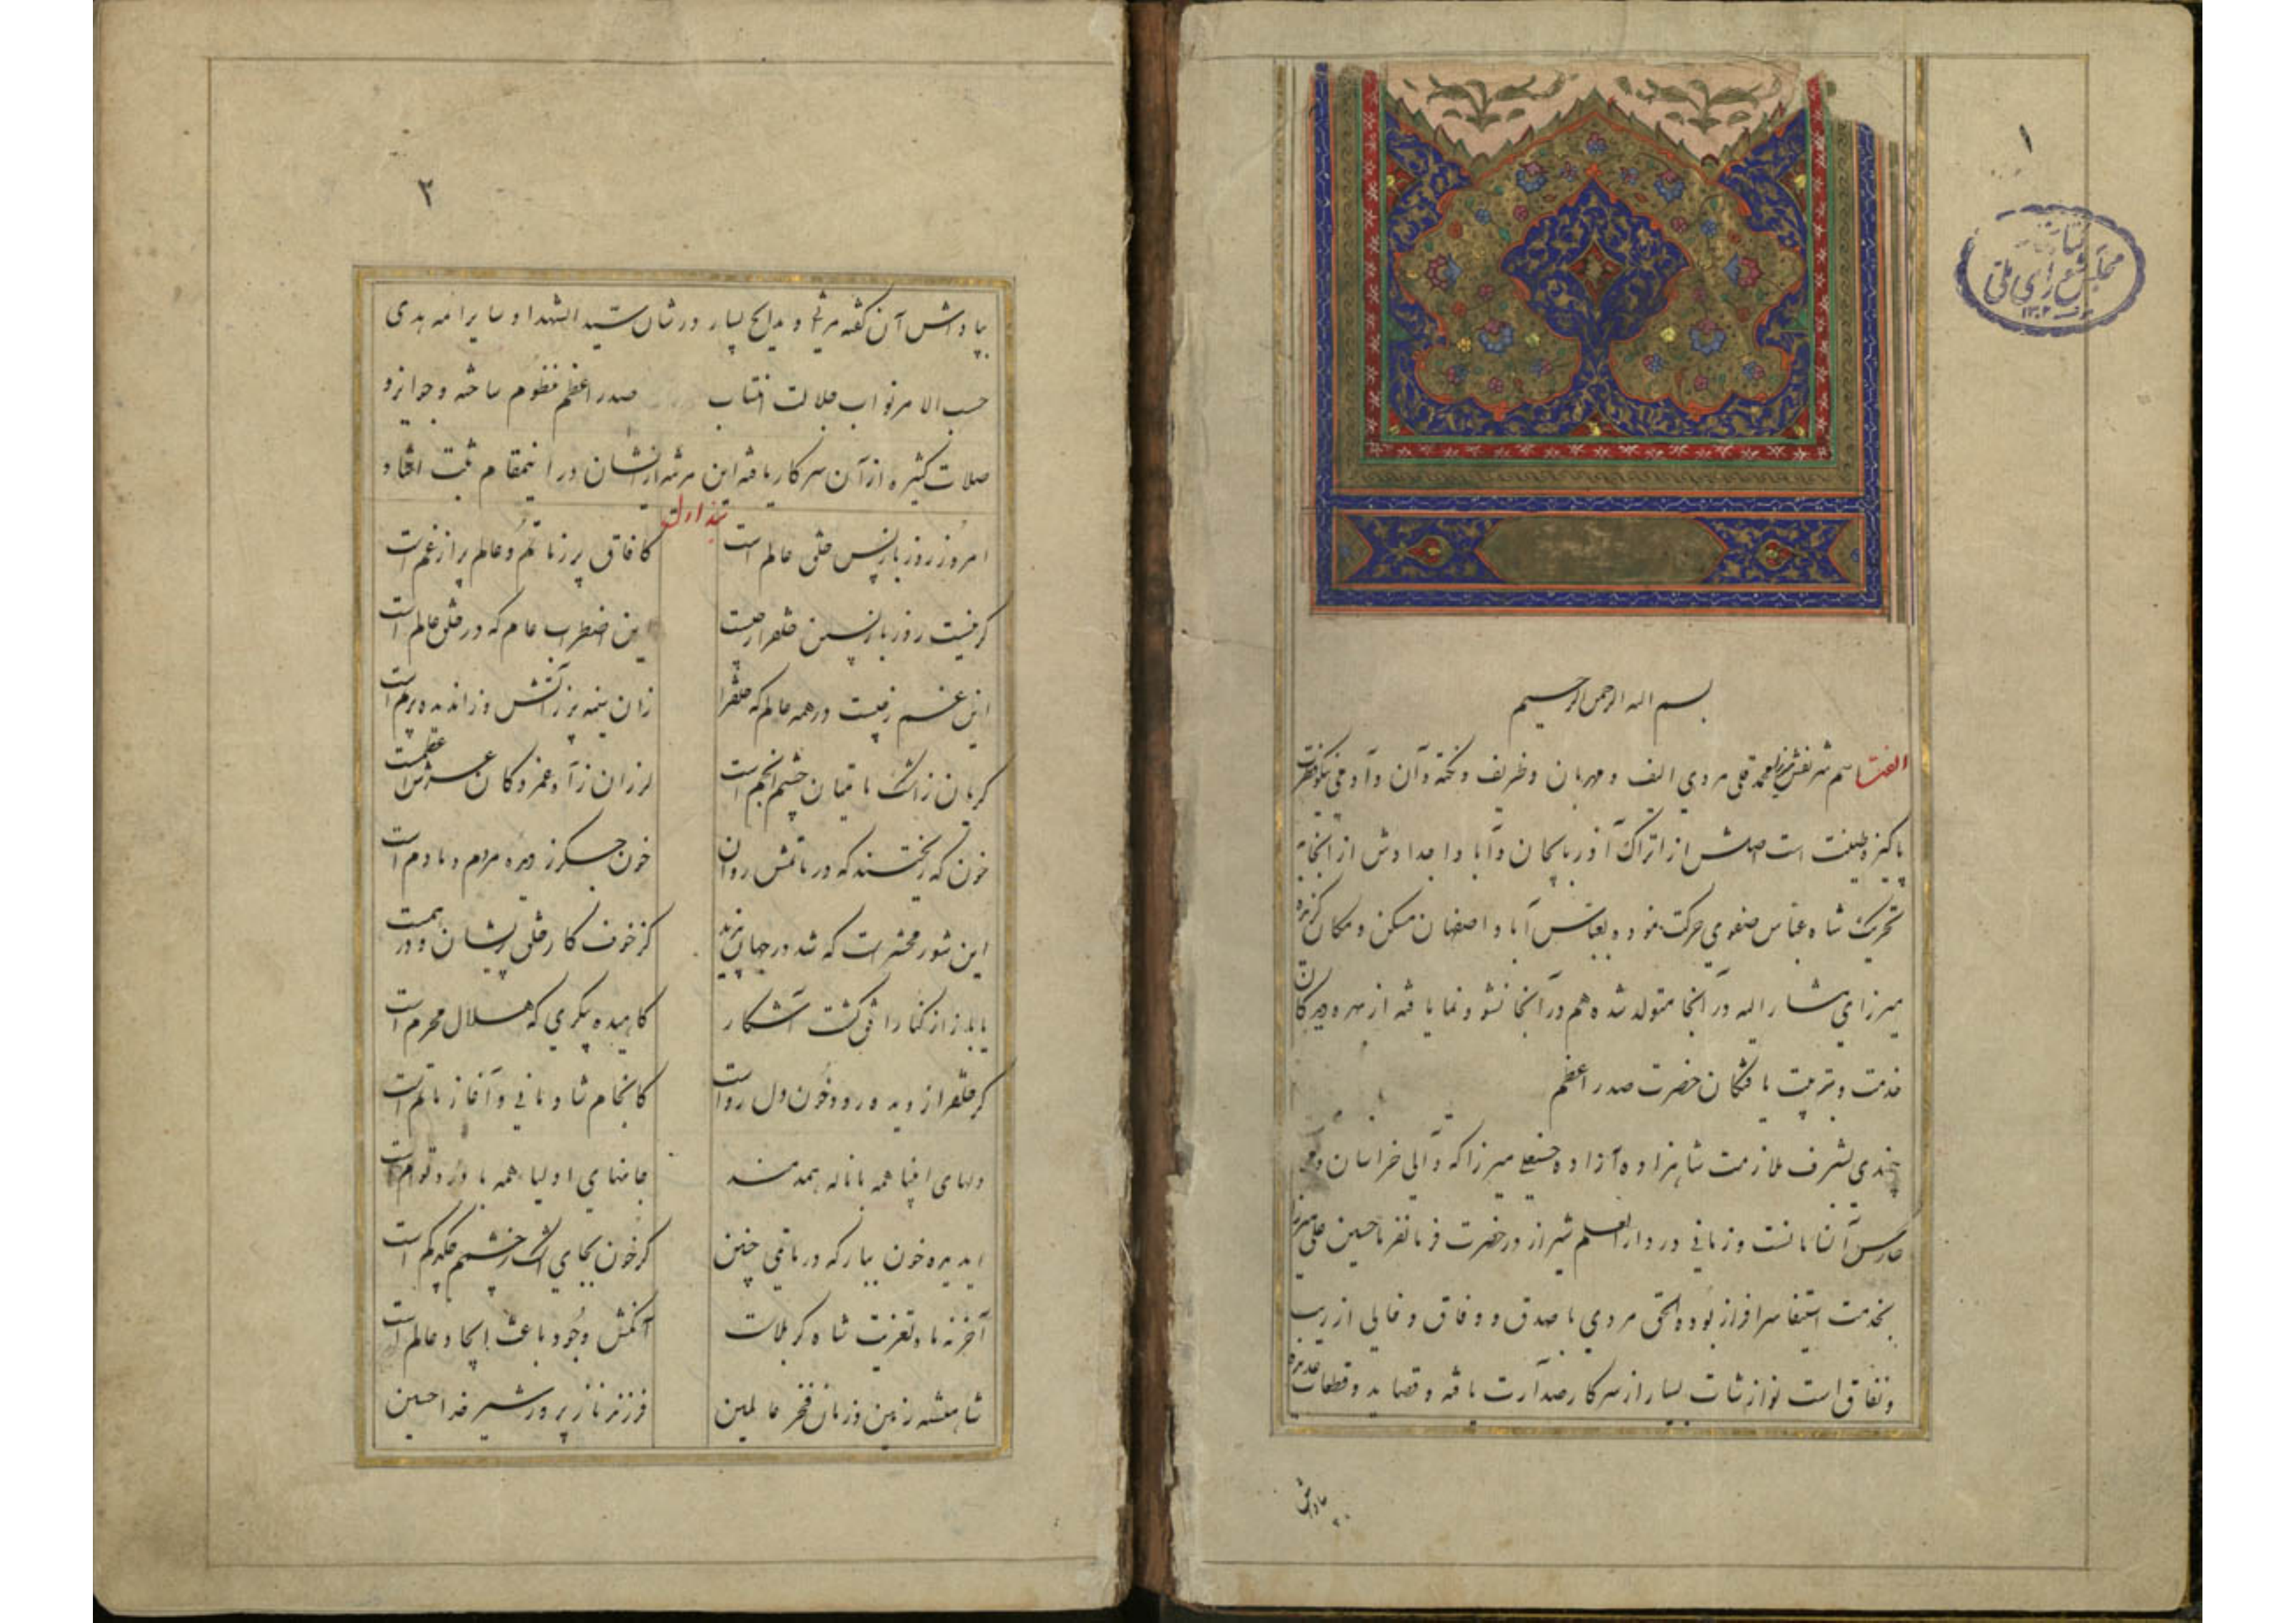 ۱
کتابخانه
مجلس شورای ملی
۱۳۰۲
بسم الله الرحمن الرحیم
الفت اسم شریفش میرزا محمد قلی مردی الیف و مهربان و ظریف و نکته دان و آدمی نیکو فطرت
پاکیزه طینت است اصلش از اتراک آذربایجان و آبا و اجدادش از آنجا به
تحریک شاه عباس صفوی حرکت نموده بعباس آباد اصفهان مسکن و مکان گزیده
میرزای مشار الیه در آنجا متولد شده هم در آنجا نشو و نما یافته از بهره‌ور کان
خدمت و تربیت یافتگان حضرت صدر اعظم
چندی بشرف ملازمت شاهزاده آزاده حسنعلی میرزا که والی خراسان و
حارس آن سامانست و زمانی در دارالعلم شیراز در حضرت فرمانفرما حسین علی میرزا
بخدمت استیفا سرافراز بوده الحق مردی با صدق و وفاق و خالی از ریب
و نفاق است نوازشات بسیار از سرکار صدارت یافته و قصاید و قطعات عدیده
پاداش
۲
پاداش آن گفته مرثیه و مدایح بسیار در شان سید الشهدا و سایر ائمه هدی
حسب الامر نواب جلالت انتساب صدر اعظم منظوم ساخته و جوایز و
صلات کثیره از آن سرکار یافته این مرثیه از ایشان در اینمقام ثبت افتاد و
بند اول
امروز روز بازپس خلق عالم است کافاق پر ز ماتم و عالم پر از غم است
گر نیست روز بازپسین خلق را ز چیست این اضطراب عام که در خلق عالم است
این غم ز کیست در همه عالم که خلق را زان سینه پر ز آتش وزان دیده پرنم است
گریان ز اشک ماتمیان چشم انجم است لرزان ز آه غمزدگان عرش اعظمست
خون که ریختند که در ماتمش روان خون جگر ز دیده مردم دمادم است
این شور محشر است که شد در جهان پدید کز خوف کار خلق پریشان و درهمست
یا باز از کنار افق گشت آشکار کاهیده پیکری که هلال محرم است
گر خلق را ز دیده رود خون دل رواست کانجام شادمانی و آغاز ماتم است
دلهای انبیا همه با ناله همدمند جانهای اولیا همه با درد توام است
ای دیده خون ببار که در ماتمی چنین گر خون بجای اشک ز چشمم چکد کم است
آخر نه ماه تعزیت شاه کربلاست آنکش وجود باعث ایجاد عالم است
شاهنشه زمین و زمان فخر عالمین فرزند نازپرور شیر خدا حسین